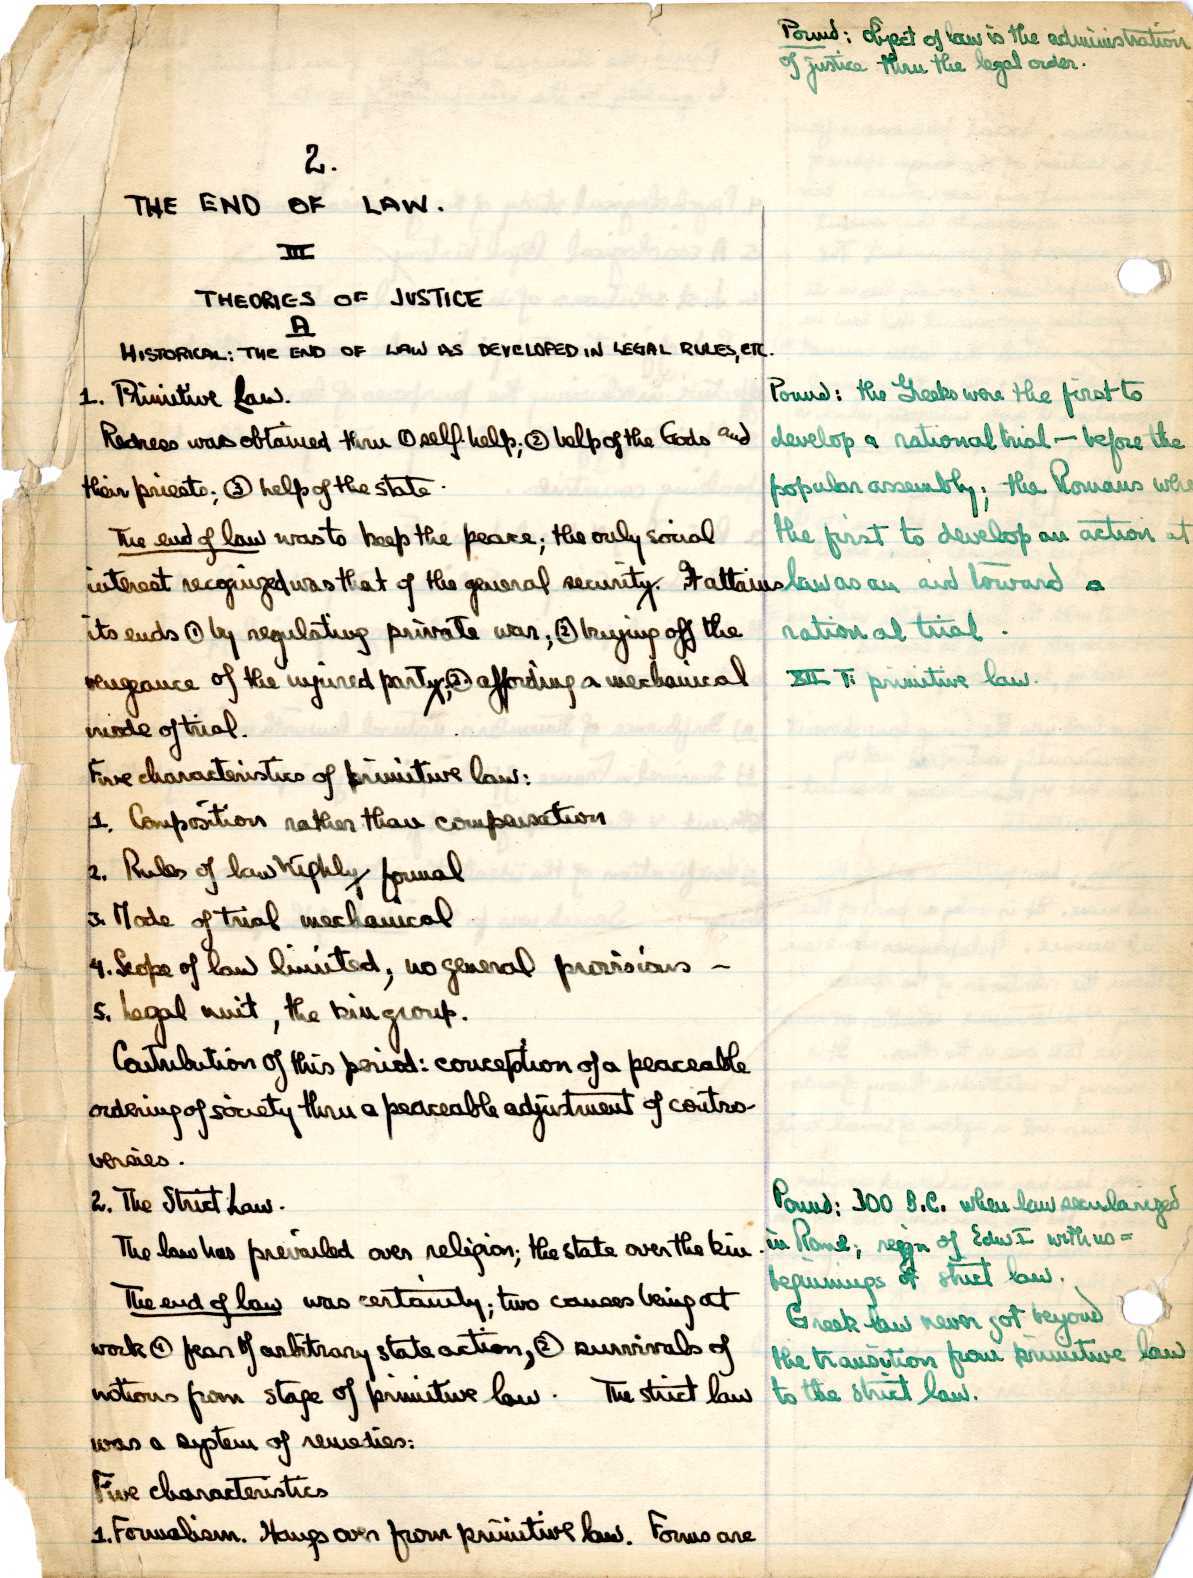 Pound: Object of law is the administration
of justice thru the legal order.
2.
THE END OF LAW.
III
THEORIES OF JUSTICE
A
HISTORICAL: THE END OF LAW AS DEVELOPED IN LEGAL RULES, ETC.
1. Primitive Law.
Redress was obtained thru ① self-help; ② help of the Gods and
their priests; ③ help of the state.
The end of law was to keep the peace; the only social
interest recognized was that of the general security. It attains
its ends ① by regulating private war, ② buying off the
vengeance of the injured party, ③ affording a mechanical
mode of trial.
Five characteristics of primitive law:
1. Composition rather than compensation
2. Rules of law highly formal
3. Mode of trial mechanical
4. Scope of law limited; no general provisions —
5. Legal unit, the kin group.
Contribution of this period: conception of a peaceable
ordering of society thru a peaceable adjustment of contro-
versies.
Pound: the Greeks were the first to
develop a rational trial — before the
popular assembly; the Romans were
the first to develop an action at
law as an aid toward a
rational trial.
XII T: primitive law.
2. The Strict Law.
The law has prevailed over religion; the state over the kin.
The end of law was certainty; two causes being at
work ① fear of arbitrary state action, ② survivals of
notions from stage of primitive law. The strict law
was a system of remedies:
Five characteristics
1. Formalism. Hangs over from primitive law. Forms are
Pound: 300 B.C. when law secularized
in Rome; reign of Edw I with us =
beginnings of strict law.
Greek law never got beyond
the transition from primitive law
to the strict law.